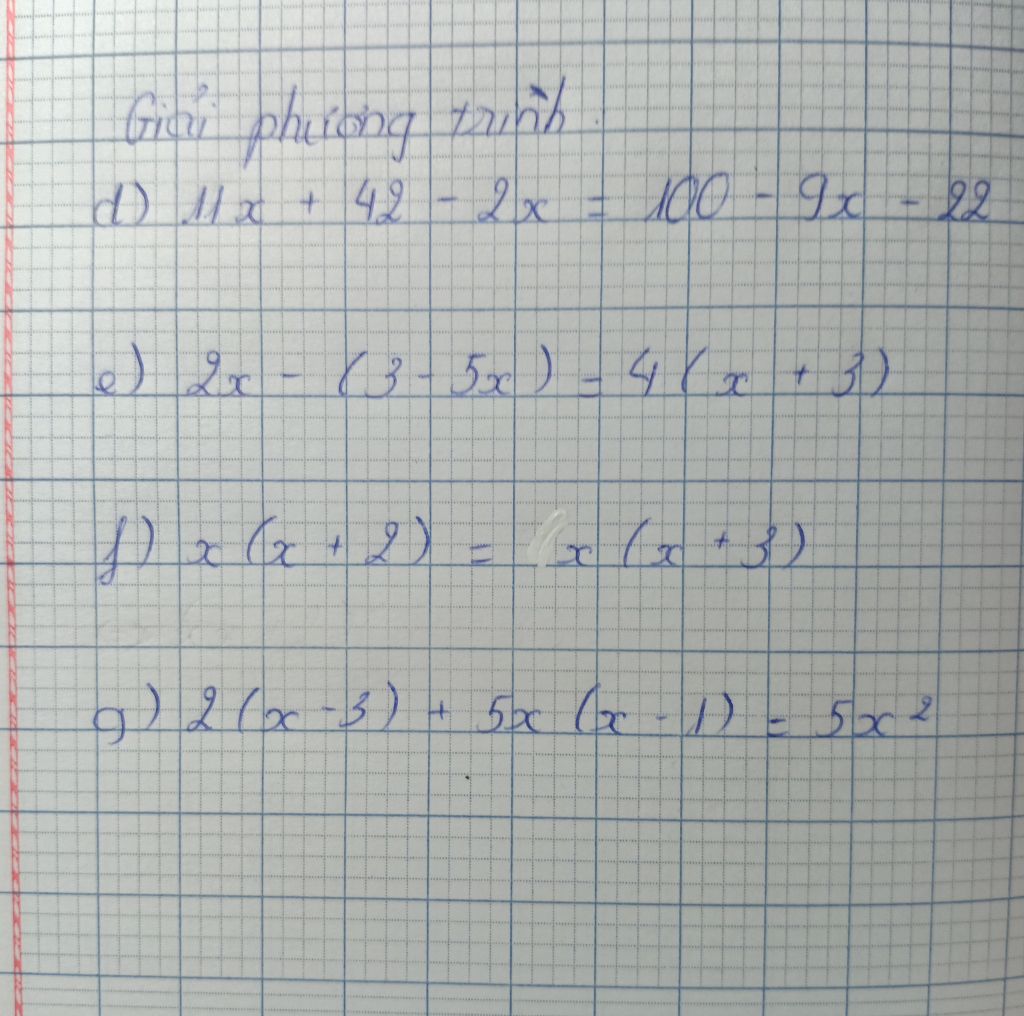 Giải phương trình.
d) 11x + 42 - 2x = 100 - 9x - 22
e) 2x - (3 - 5x) = 4(x + 3)
f) x(x + 2) = x(x + 3)
g) 2(x - 3) + 5x(x - 1) = 5x²